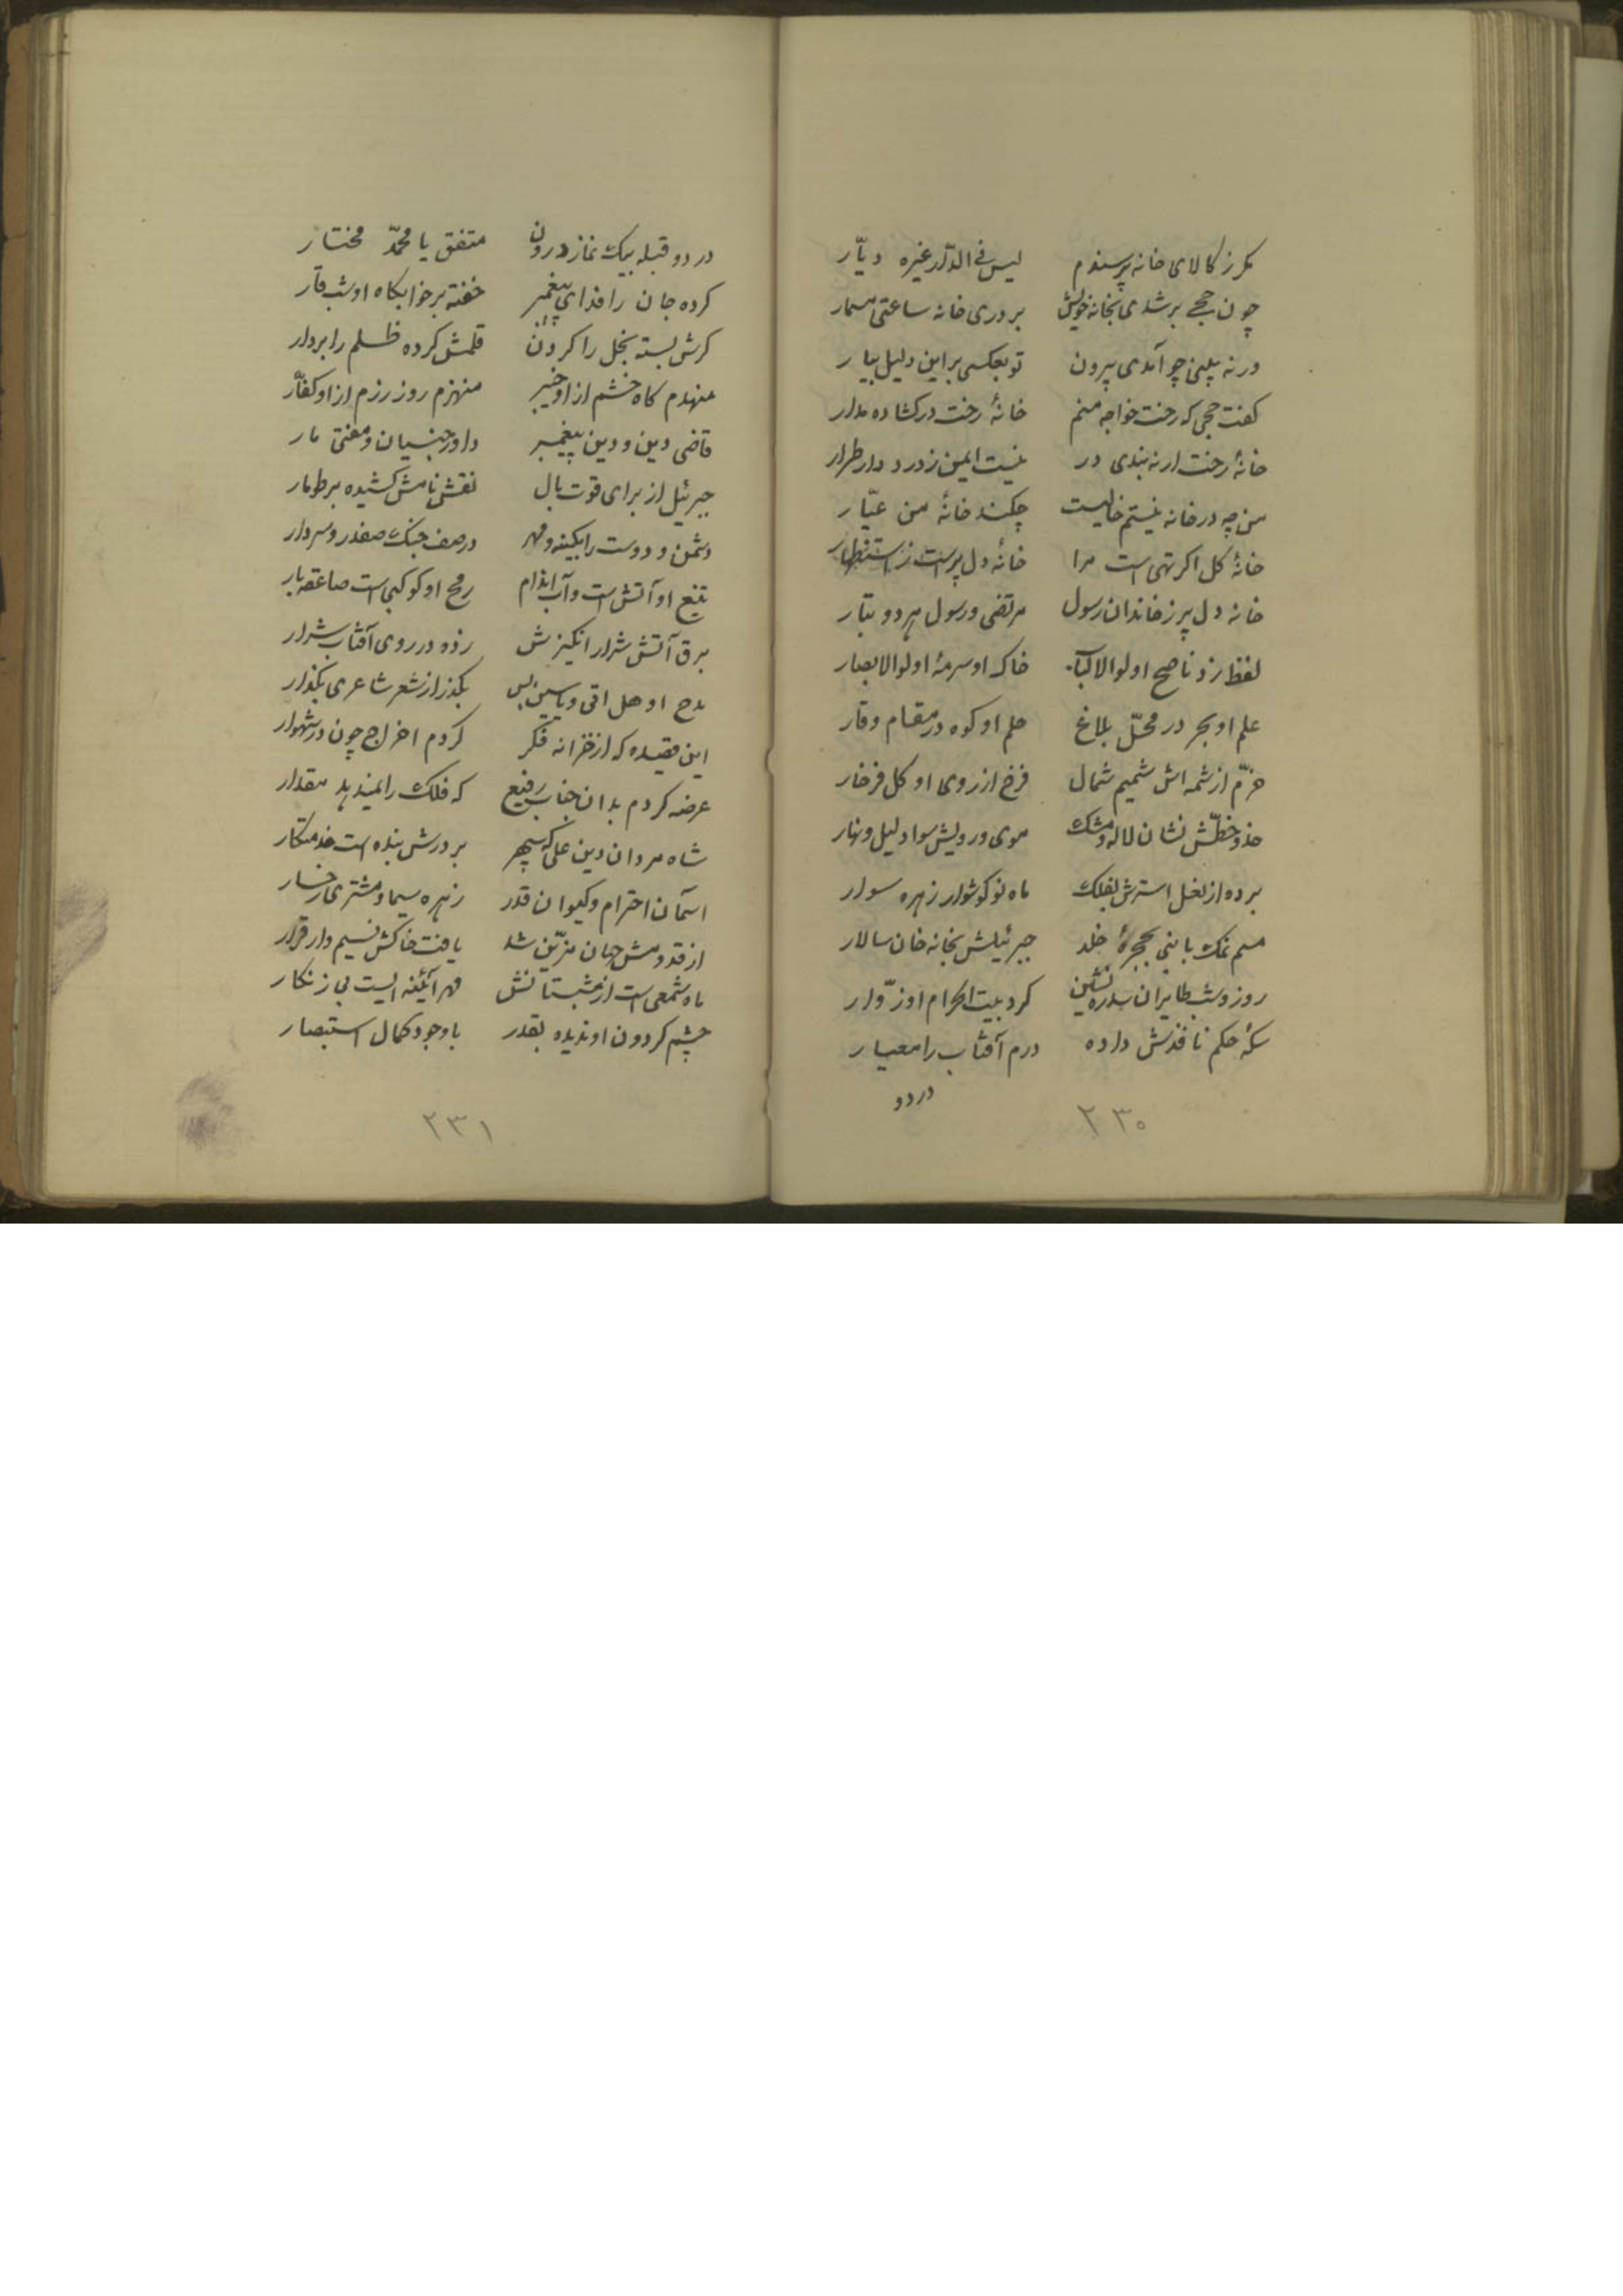 کرز کالای خانه پرسندم لیس فی الدار غیره دیّار
چون حجی بر شدی بخانه خویش بر دری خانه ساعتی مسمار
ورنه بینی چو آمدی بیرون تو بعکسی بر این دلیل بیار
کفت حجی که رخت خواجه منم خانهٔ رخت در کشاده مدار
خانهٔ رخت ار نه بندی در نیست ایمن ز درد دار طرار
من چه در خانه نیستم خالیست چکند خانهٔ من عیّار
خانهٔ کل اکر تهی است مرا خانهٔ دل پر است ز استظهار
خانه دل پر ز خاندان رسول مرتضی و رسول هر دو تبار
لفظ زد ناصح اولوالالباب خاک او سرمهٔ اولوالابصار
علم او بحر در محلّ بلاغ حلم او کوه در مقام وقار
خرّم از شمه اش شمیم شمال فرخ از روی او کل فرخار
خد و خطّش نشان لاله و مشک موی و رویش سواد لیل و نهار
برده از نعل استرش بفلک ماه نو کوشوار زهره سوار
هم نمک با نبی بحجرهٔ خلد جبرئیلش بخانه خان سالار
روز و شب طایران سدره نشین کرد بیت الحرام او زوّار
سکهٔ حکم نافذش داده درم آفتاب را معیار
در دو
۲۳۰
در دو قبله بیک نماز درون متفق با محمّد مختار
کرده جان را فدای پیغمبر خفته بر خوابکاه او شب قار
کرش بسته بخل را کردن قلمش کرده ظلم را بردار
منهدم کاه خشم از او خیبر منهزم روز رزم از او کفّار
قاضی دین و دین پیغمبر داور جنیان و مفتی مار
جبرئیل از برای قوت بال نقش نامش کشیده بر طومار
دشمن و دوست را بکینه و مهر در صف جنک صفدر و سردار
تیغ او آتش است و آب اندام رمح او کوکبی است صاعقه بار
برق آتش شرار انکیزش زده در روی آفتاب شرار
مدح او هل اتی و یاسین بس بکذر از شعر شاعری بکذار
این قصیده که از خزانه فکر کردم اخراج چون در شهوار
عرضه کردم بدان جناب رفیع که فلک را نمیدهد مقدار
شاه مردان دین علی که سپهر بر درش بنده است خدمتکار
آسمان احترام و کیوان قدر زهره سیما و مشتری رخسار
از قدومش جهان مزیّن شد یافت خاکش نسیم دار قرار
ماه شمعی است از شبستانش مهر آئینه ایست بی زنکار
چشم کردون او ندیده بقدر با وجود کمال استبصار
۲۳۱